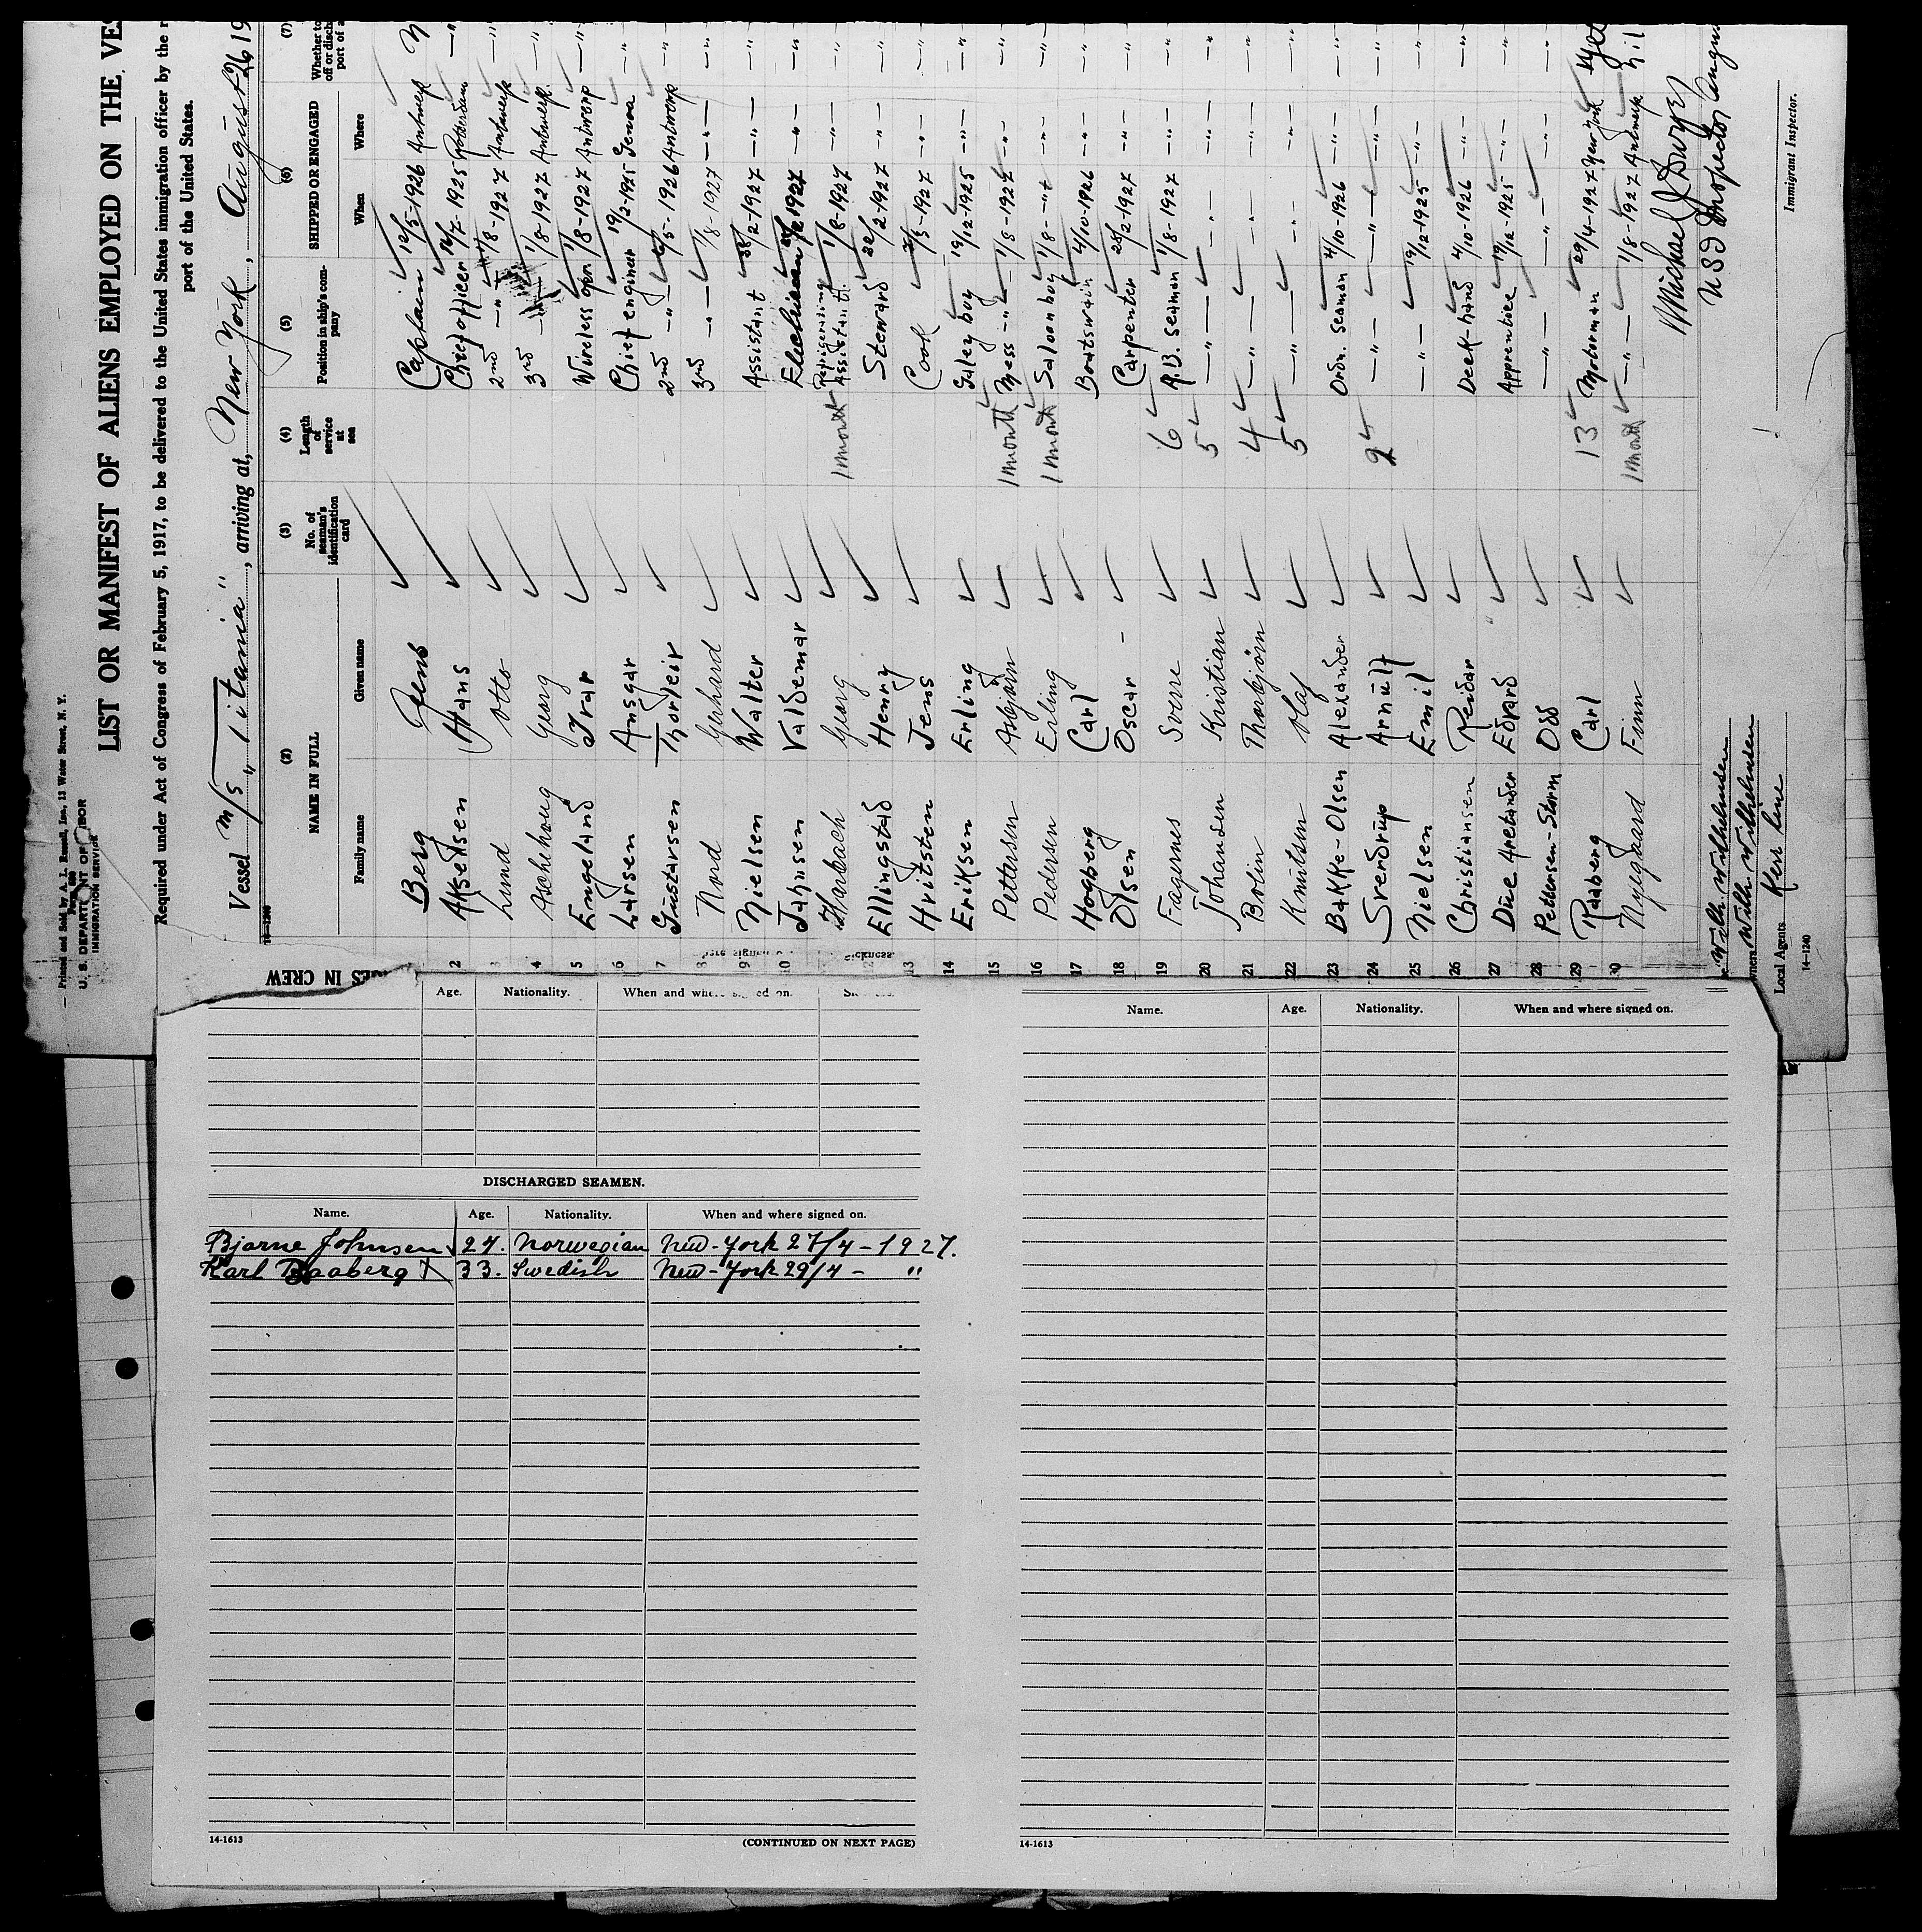 Printed and Sold by A. L. Russell, Inc., 13 Water Street, N. Y.
U. S. DEPARTMENT OF LABOR
IMMIGRATION SERVICE
LIST OR MANIFEST OF ALIENS EMPLOYED ON THE VES
Required under Act of Congress of February 5, 1917, to be delivered to the United States immigration officer by the r
port of the United States.
Vessel m/s "Titania", arriving at, New York, August 26 19
(2) (3) (4) (5) (6) (7)
NAME IN FULL No. of seaman's identification card Length of service at sea Position in ship's company SHIPPED OR ENGAGED Whether to off or disch port of a
Family name Given name When Where
Berg Jens Captain 12/5-1926 Antwerp
2 Akselsen Hans Chief officer 14/7-1925 Rotterdam -"-
3 Lund Otto 2nd -"- 1/8-1927 Antwerp -"-
4 Aschehoug Georg 3rd 1/8-1927 Antwerp. -"-
5 Engeland Ivar Wireless opr. 1/8-1927 Antwerp -"-
6 Larsen Ansgar Chief engineer 19/2-1925 Genoa -"-
7 Gustavsen Thorleif 2nd -"- /5-1926 Antwerp -"-
8 Nord Gerhard 3rd -"- 1/8-1927 -"- -"-
9 Nielsen Walter Assistant 28/2-1927 -"- -"-
10 Jahnsen Valdemar Electrician 1927 -"- -"-
Harbach Georg 1 month Refrigerating Assistant. 1/8-1927 -"- -"-
12 Ellingstad Henry Steward 22/2-1927 -"- -"-
13 Hvitsten Jens Cook /5-1927 -"- -"-
14 Eriksen Erling Galey boy 19/12-1925 -"- -"-
15 Pettersen Asbjørn 1 month Mess -"- 1/8-1927 -"- -"-
16 Pedersen Erling 1 month Saloon boy 1/8- -"- -"- -"-
17 Hogberg Carl Boatswain 4/10-1926 -"- -"-
18 Olsen Oscar - Carpenter 28/2-1927 -"- -"-
19 Fagernes Sverre 6 A.B. seaman 1/8-1927 -"- -"-
20 Johansen Kristian 5 -"- -"- -"- -"-
21 Bolin Thorbjørn 4 -"- -"- -"- -"-
22 Knutsen Olaf 5 -"- -"- -"- -"-
23 Bakke-Olsen Alexander Ordn. seaman 4/10-1926 -"- -"-
24 Sverdrup Arnulf 2 -"- -"- -"- -"-
25 Nielsen Emil -"- 19/12-1925 -"- -"-
26 Christiansen Reidar Deck-hand 4/10-1926 -"- -"-
27 Due Arelander Edvard Apprentice 19/12-1925 -"- -"-
28 Pettersen-Storm Odd -"- -"- -"- -"-
29 Raaberg Carl 13 Motorman 29/4-1927 New York
30 Nygaard Finn 1 month -"- 1/8-1927 Antwerp
Michael J. Dwyer
Inspector
Immigrant Inspector.
Wilh. Wilhelmsen
Owners Wilh. Wilhelmsen
Local Agents Kerr Line
14-1240
IN CREW
Age. Nationality. When and where signed on.
DISCHARGED SEAMEN.
Name. Age. Nationality. When and where signed on.
Bjarne Johnsen 24. Norwegian New-York 27/4-1927.
Karl Raaberg 33. Swedish New-York 29/4- "
14-1613 (CONTINUED ON NEXT PAGE)
Name. Age. Nationality. When and where signed on.
14-1613